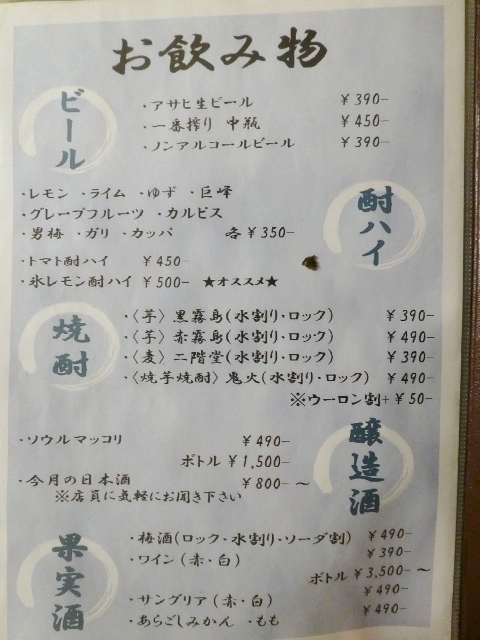 お飲み物
ビール
・アサヒ生ビール ￥390-
・一番搾り 中瓶 ￥450-
・ノンアルコールビール ￥390-
酎ハイ
・レモン ・ライム ・ゆず ・巨峰
・グレープフルーツ ・カルピス
・男梅 ・ガリ ・カッパ 各￥350-
・トマト酎ハイ ￥450-
・氷レモン酎ハイ ￥500- ★オススメ★
焼酎
・〈芋〉黒霧島(水割り・ロック) ￥390-
・〈芋〉赤霧島(水割り・ロック) ￥490-
・〈麦〉二階堂(水割り・ロック) ￥390-
・〈焼芋焼酎〉鬼火(水割り・ロック) ￥490-
※ウーロン割+￥50-
醸造酒
・ソウルマッコリ ￥490-
ボトル ￥1,500-
・今月の日本酒 ￥800-～
※店員に気軽にお聞き下さい
果実酒
・梅酒(ロック・水割り・ソーダ割) ￥490-
・ワイン(赤・白) ￥390-
ボトル ￥3,500-～
・サングリア(赤・白) ￥490-
・あらごしみかん ・もも ￥490-